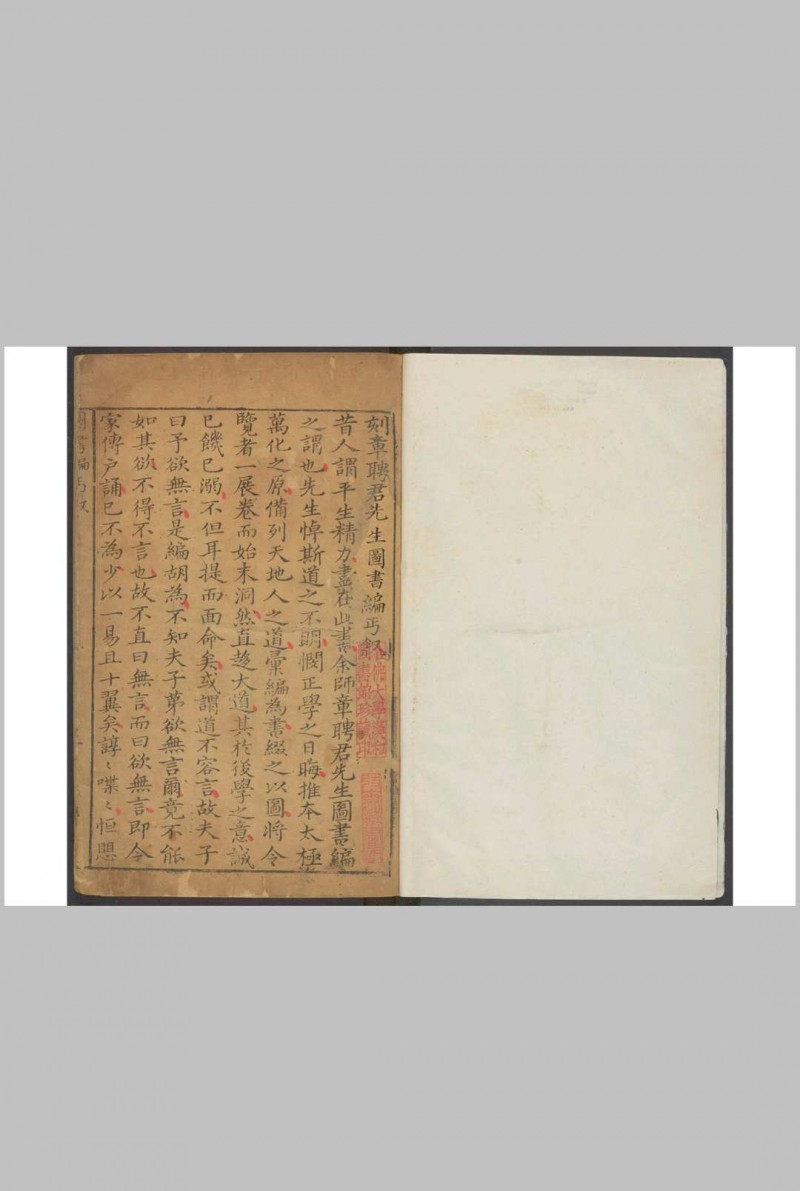 刻章聘君先生圖書編丐叙
昔人謂平生精力盡在此書余師章聘君先生圖書編
之謂也先生悼斯道之不明憫正學之日晦推本太極
萬化之原備列天地人之道彚編為書綴之以圖將令
覽者一展卷而始末洞然直趨大道其於後學之意誠
已饑已溺不但耳提而面命矣或謂道不容言故夫子
曰予欲無言是編胡為不知夫子第欲無言爾竟不能
如其欲不得不言也故不直曰無言而曰欲無言即令
家傳戶誦已不為少以一易且十翼矣諄〻喋〻恒愳
圖書編丐叙